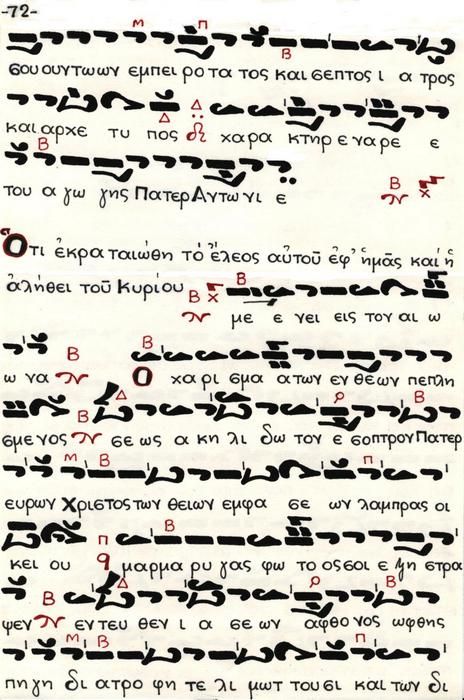 -72-
σου ουντωων εμπει ρο τα τος και σεπτος ι α τρος
και αρχε τυ πος χαρα κτηρ ε ναρε ε
του α γω γης Πατερ Αντωνι ε
Ὅτι ἐκραταιώθη τὸ ἔλεος αὐτοῦ ἐφ' ἡμᾶς καὶ ἡ
ἀλήθει τοῦ Κυρίου με ε νει εις τον αι ω
ω να Ο χαρι σμα ατων εν θεων πεπλη
σμενος σε ως α κη λι δω τον ε σοπτρον Πατερ
ευρων Χριστος των θειων εμφα σε ων λαμπρας οι
κει ου μαρμα ρυ γας φω το οσσοι ε γη στρα
ψεν εντευ θεν ι α σε ων αφθο νος ωφθης
πη γη δι ατρο φη τε λι μωτ του σι και των δι